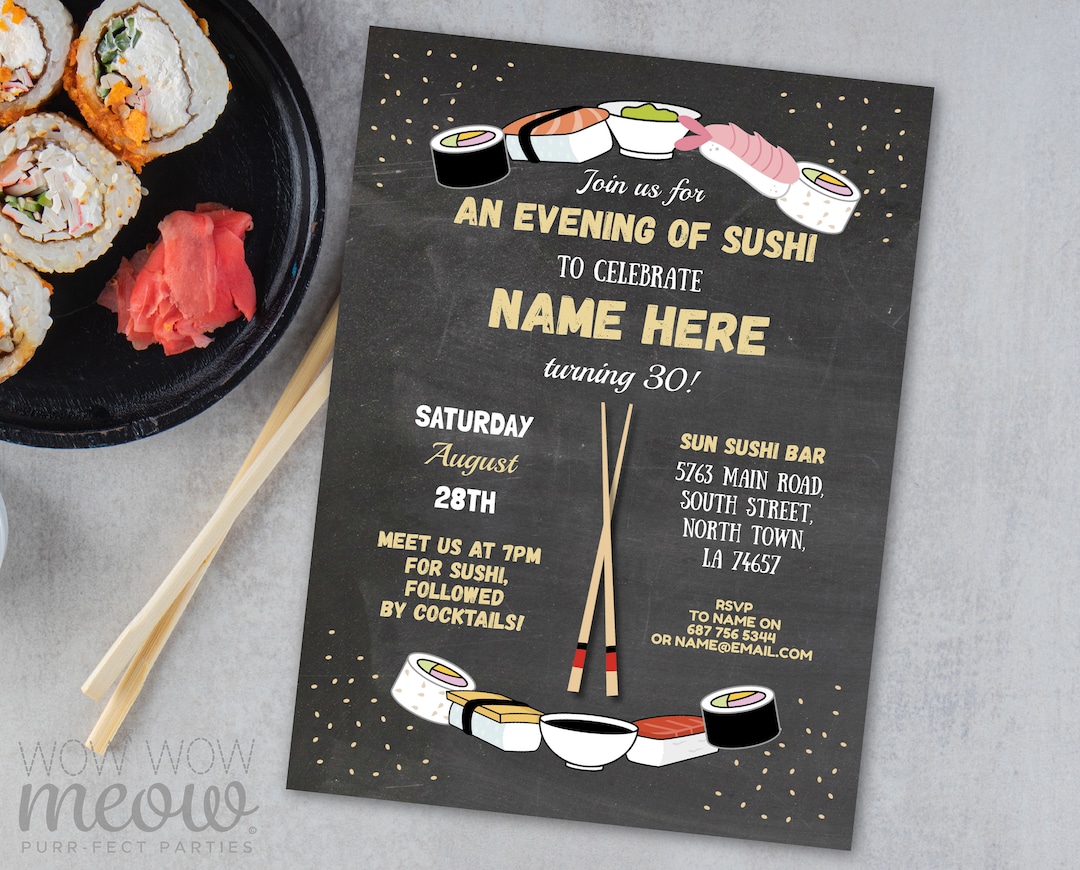 Join us for
AN EVENING OF SUSHI
TO CELEBRATE
NAME HERE
turning 30!
SATURDAY
August
28TH
MEET US AT 7PM
FOR SUSHI,
FOLLOWED
BY COCKTAILS!
SUN SUSHI BAR
5763 MAIN ROAD,
SOUTH STREET,
NORTH TOWN,
LA 74657
RSVP
TO NAME ON
687 756 5344
OR NAME@EMAIL.COM
WOW WOW
meow©
PURR-FECT PARTIES